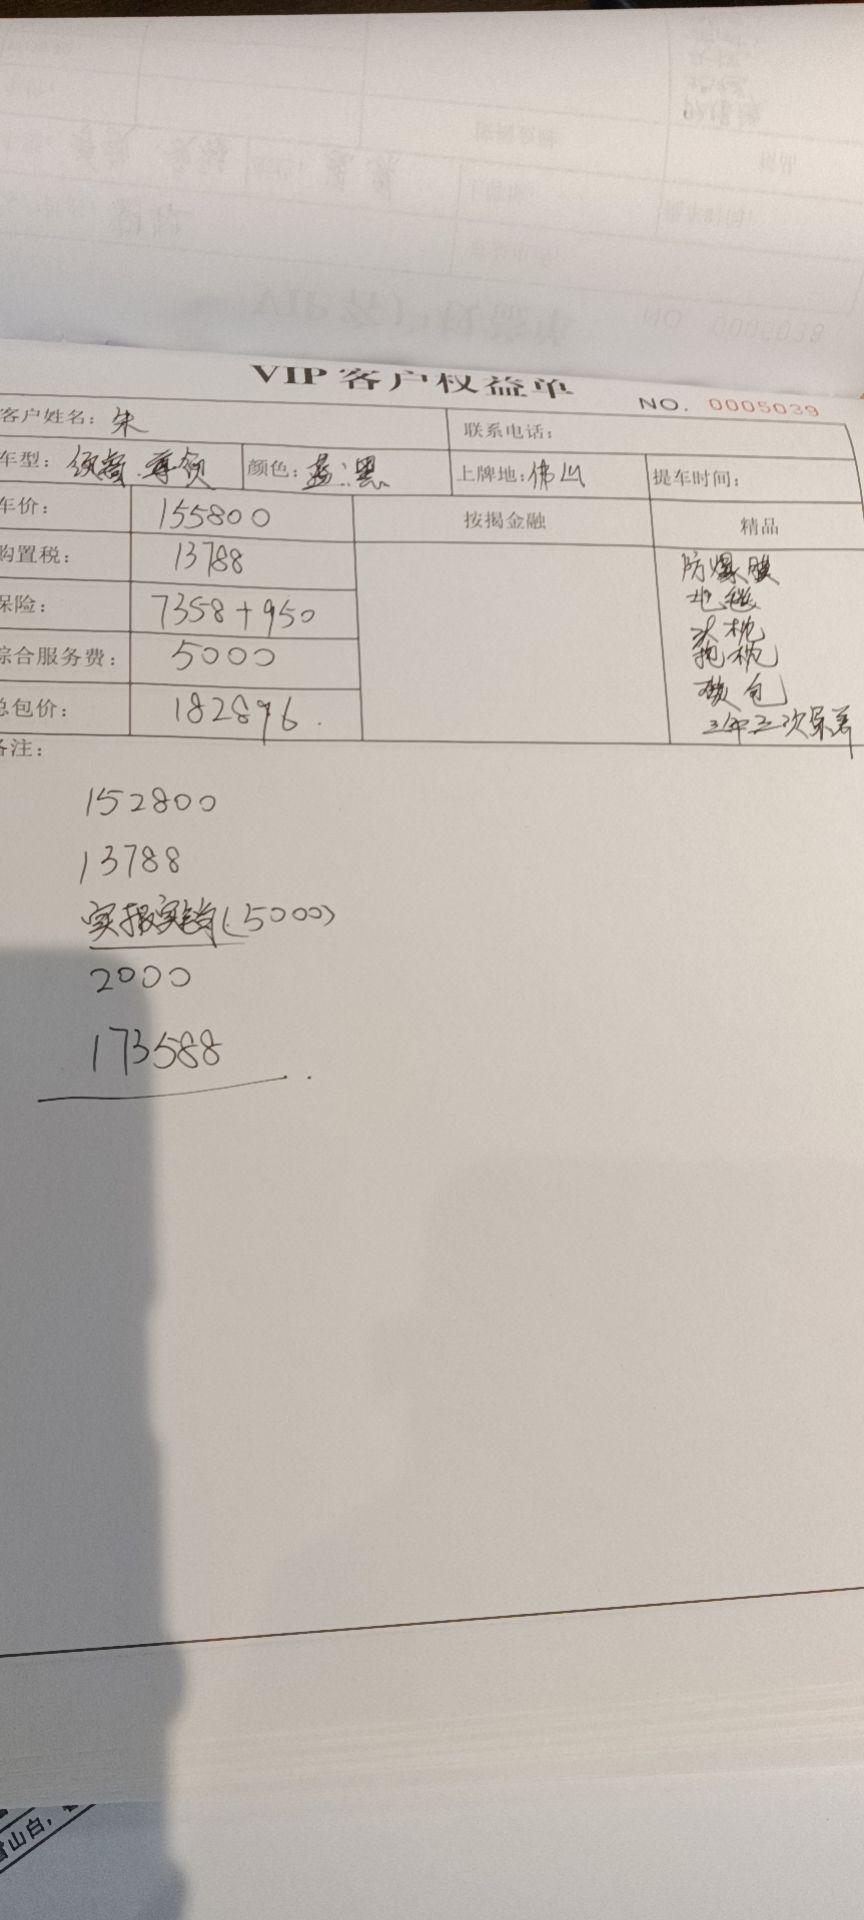 VIP 客户权益单
NO. 0005039
客户姓名：朱
联系电话：
车型：领裔.尊领
颜色：蓝.黑
上牌地：佛山
提车时间：
车价：
155800
按揭金融
精品
购置税：
13788
保险：
7358+950
综合服务费：
5000
总包价：
182896.
防爆膜
地毯
头枕
抱枕
三年三次保养
备注：
152800
13788
实报实销(5000)
2000
173588